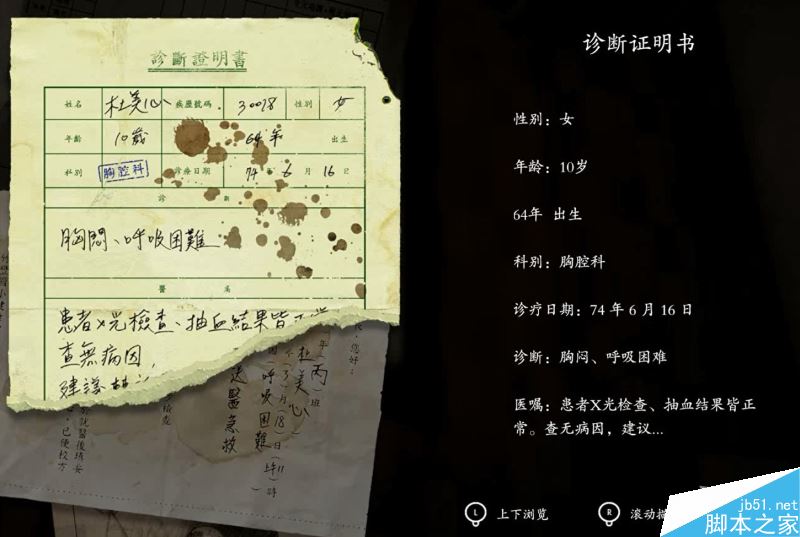 診斷證明書
姓名 杜美心 病歷號碼 30078 性別 女
年齡 10歲 64年 出生
科別 胸腔科 診療日期 74年 6月 16日
診 斷
胸悶、呼吸困難
醫 囑
患者X光檢查、抽血結果皆正常
查無病因
建議
您好：
年(丙)班
杜美心
(呼吸困難)
送醫急救
診断证明书
性别：女
年龄：10岁
64年 出生
科别：胸腔科
诊疗日期：74 年 6 月 16 日
诊断：胸闷、呼吸困难
医嘱：患者X光检查、抽血结果皆正
常。查无病因，建议...
L 上下浏览
R 滚动
jb51.net
脚本之家